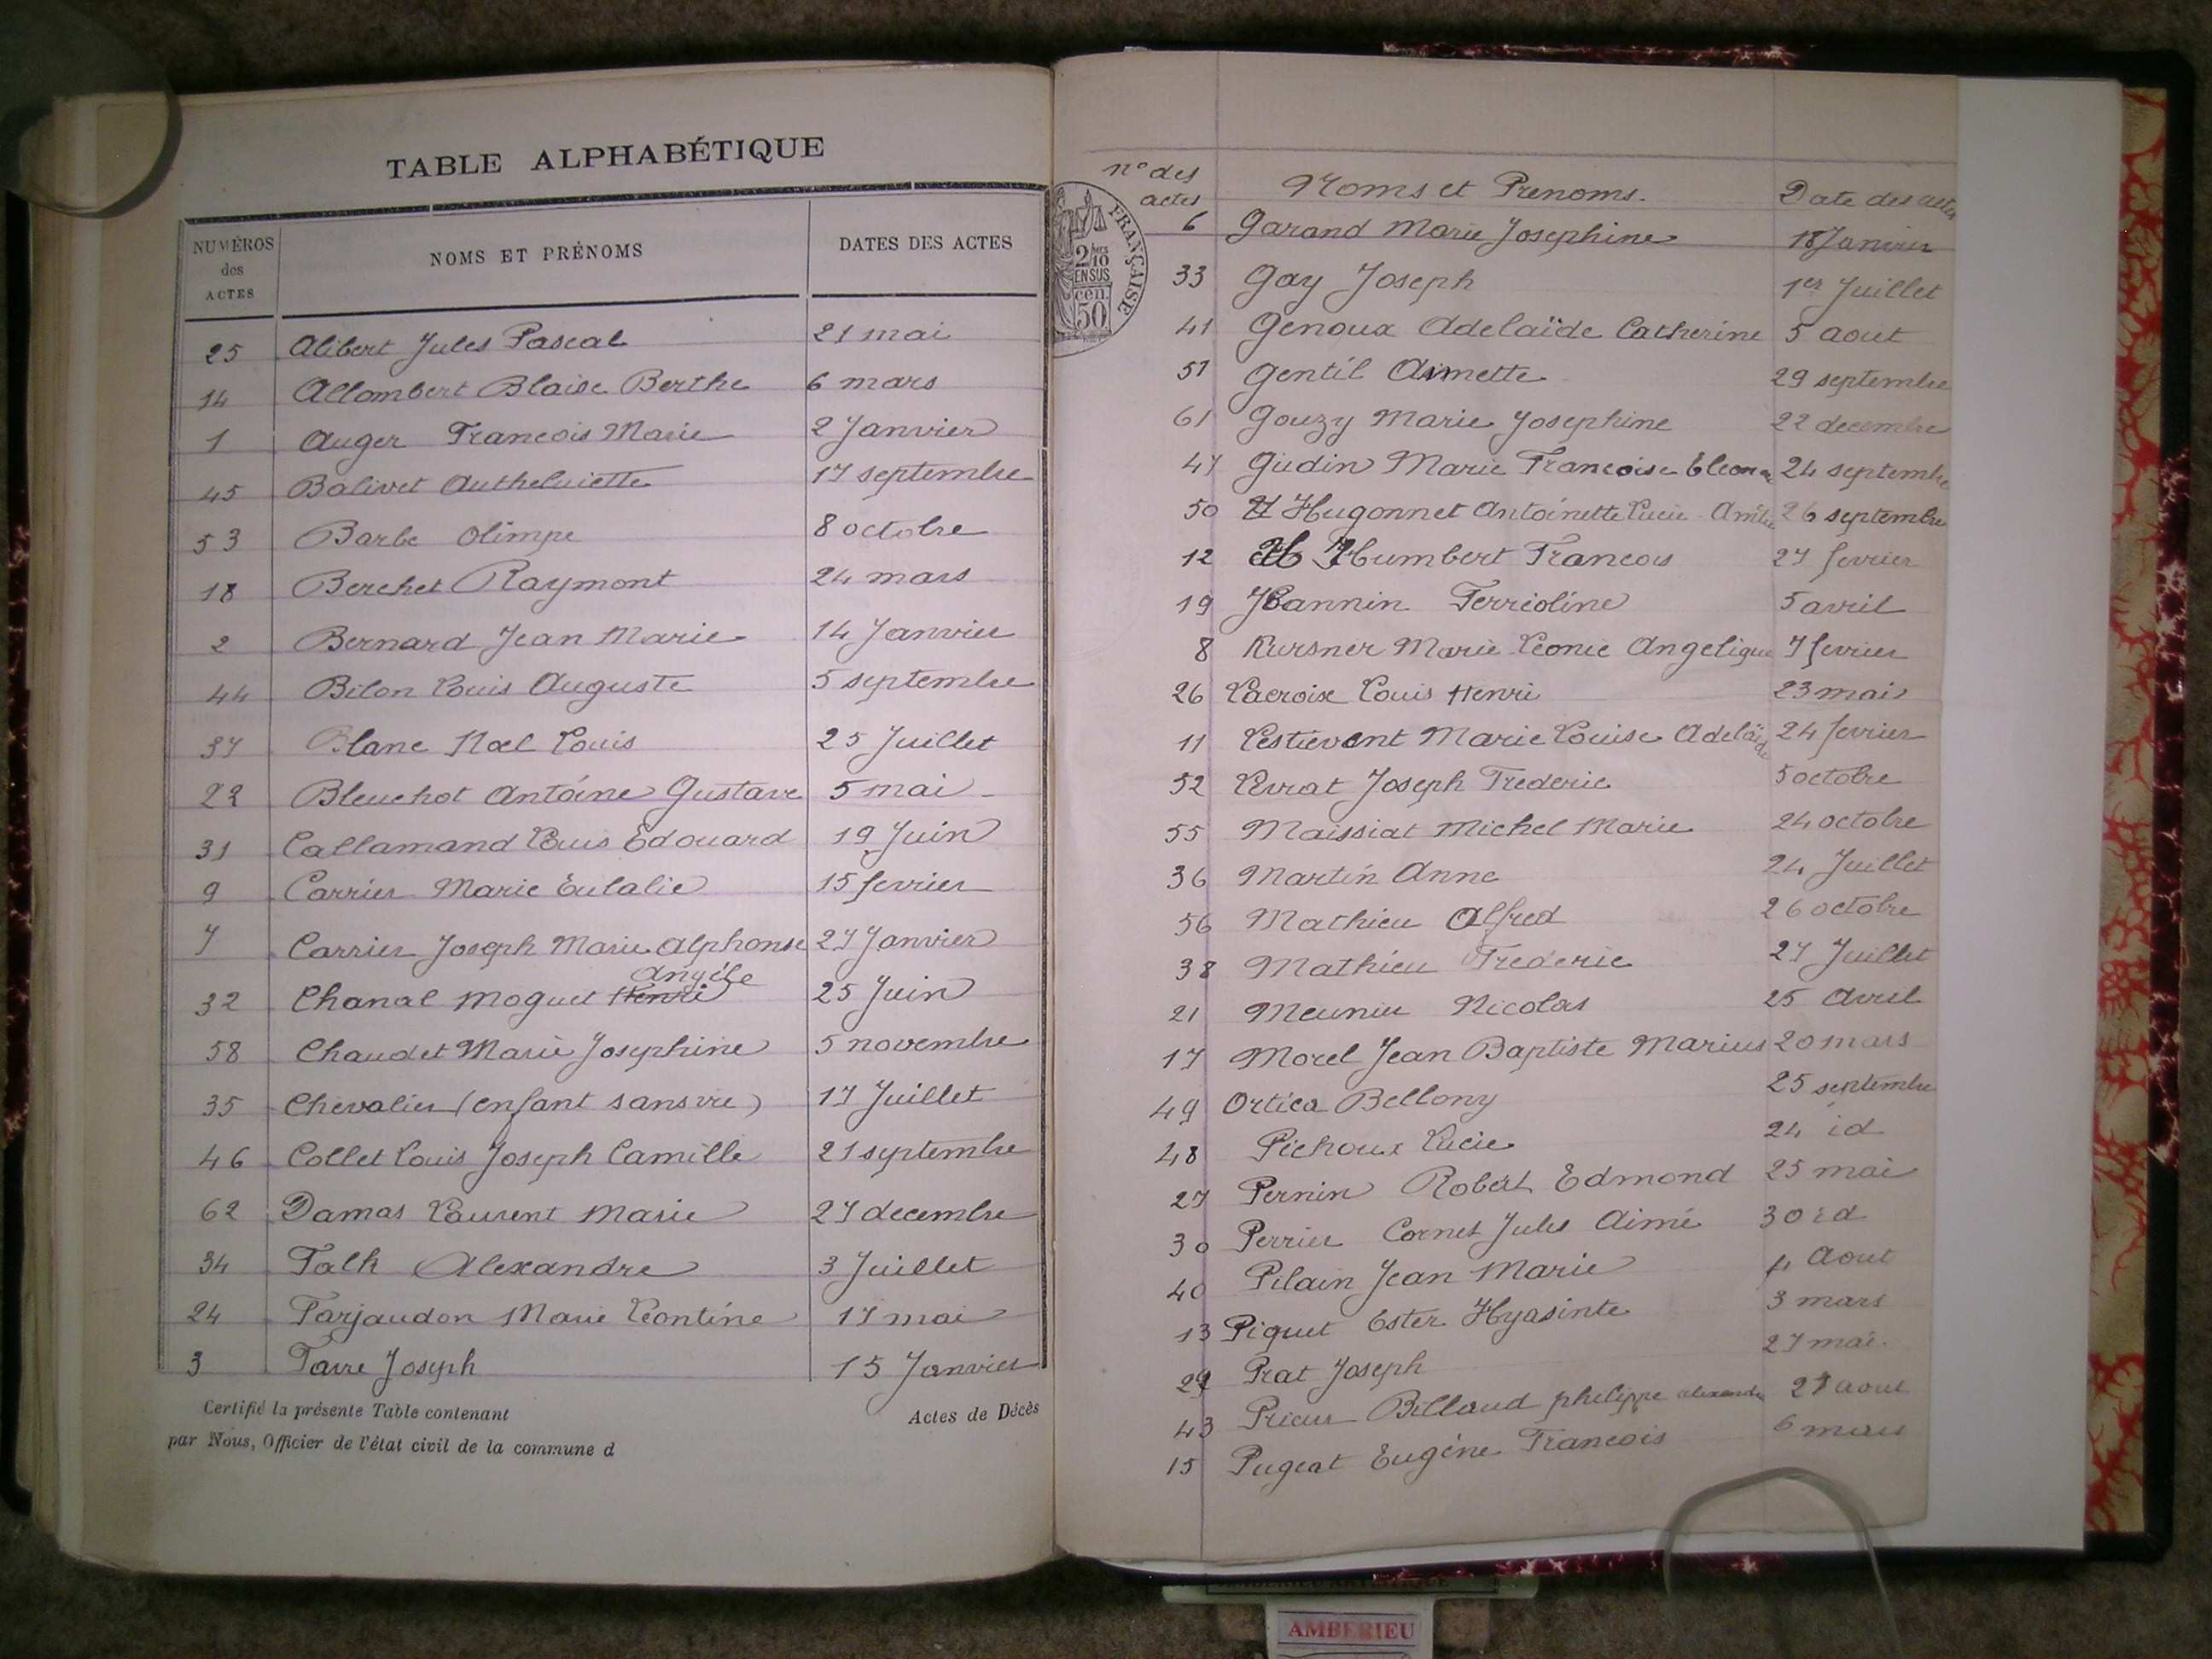 TABLE ALPHABÉTIQUE
NUMÉROS des ACTES NOMS ET PRÉNOMS DATES DES ACTES
25 Alibert Jules Pascal 21 mai
14 Allombert Blaise Berthe 6 mars
1 Auger Francois Marie 2 Janvier
45 Balivet 17 septembre
53 Barbe Olimpe 8 octobre
18 Berchet Raymont 24 mars
2 Bernard Jean Marie 14 Janvier
44 Bilon Louis Auguste 5 septembre
37 Blanc Noel Louis 25 Juillet
22 Bleuchot Antoine Gustave 5 mai
31 Callamand Louis Edouard 19 Juin
9 Carrier Marie Eulalie 15 fevrier
7 Carrier Joseph Marie Alphonse 27 Janvier
Angéle
32 Chanal Moguet Henri 25 Juin
58 Chaudet Marie Josephine 5 novembre
35 Chevalier (enfant sans vie) 17 Juillet
46 Collet Louis Joseph Camille 21 septembre
62 Damas Laurent Marie 27 decembre
34 Falk Alexandre 3 Juillet
24 Farjaudon Marie Leontine 17 mai
3 Favre Joseph 15 Janvier
Certifié la présente Table contenant Actes de Décès
par Nous, Officier de l'état civil de la commune d
FRANÇAISE
2/10
EN SUS
50 cen.
n° des actes Noms et Prenoms. Date des actes
6 Garand Marie Josephine 18 Janvier
33 Gay Joseph 1er Juillet
41 Genoux Adelaïde Catherine 5 aout
51 Gentil Aimette 29 septembre
61 Gouzy Marie Josephine 22 decembre
47 Gudin Marie Francoise 24 septembre
50 Hugonnet Antoinette Lucie 26 septembre
12 Humbert Francois 27 fevrier
19 Jeannin Ferreoline 5 avril
8 Kursner Marie Leonie Angelique 7 fevrier
26 Lacroix Louis Henri 23 mai
11 Lestievent Marie Louise Adelaïde 24 fevrier
52 Levrat Joseph Frederic 5 octobre
55 Maissiat Michel Marie 24 octobre
36 Martin Anne 24 Juillet
56 Mathieu Alfred 26 octobre
38 Mathieu Frederic 27 Juillet
21 Meunier Nicolas 25 Avril
17 Morel Jean Baptiste Marius 20 mars
49 Ortica Bellony 25 septembre
48 Pichoux Lucie 24 id
27 Pernin Robert Edmond 25 mai
30 Perrier Cornet Jules Aimé 30 id
40 Pilain Jean Marie 4 Aout
13 Piquet Ester Hyasinte 3 mars
29 Prat Joseph 27 mai.
43 Prieur Billaud philippe alexandre 27 aout
15 Pugeat Eugéne Francois 6 mars
AMBERIEU